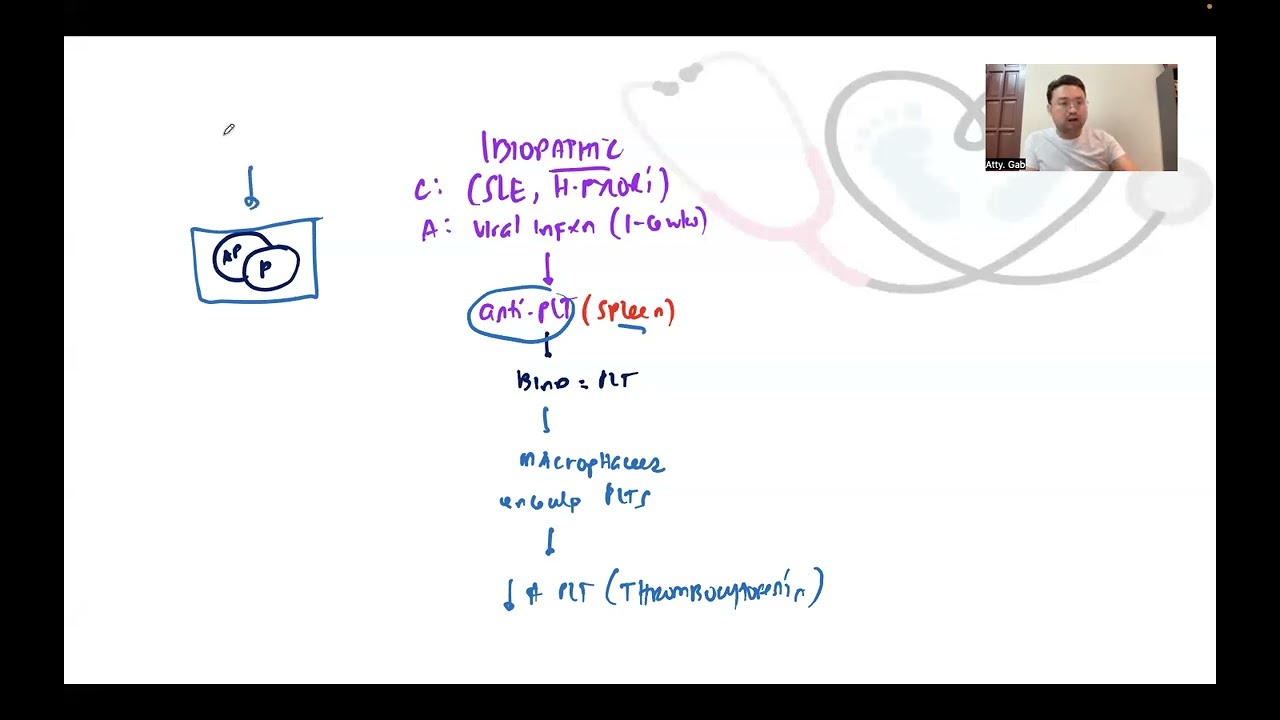 IDIOPATHIC
C: (SLE, H. PYLORI)
A: Viral infxn (1-6 wks)
anti-PLT (Spleen)
AP P
BIND = PLT
mAcropHages
engulp PLTS
↓ # PLT (THromBocytopenia)
Atty. Gab